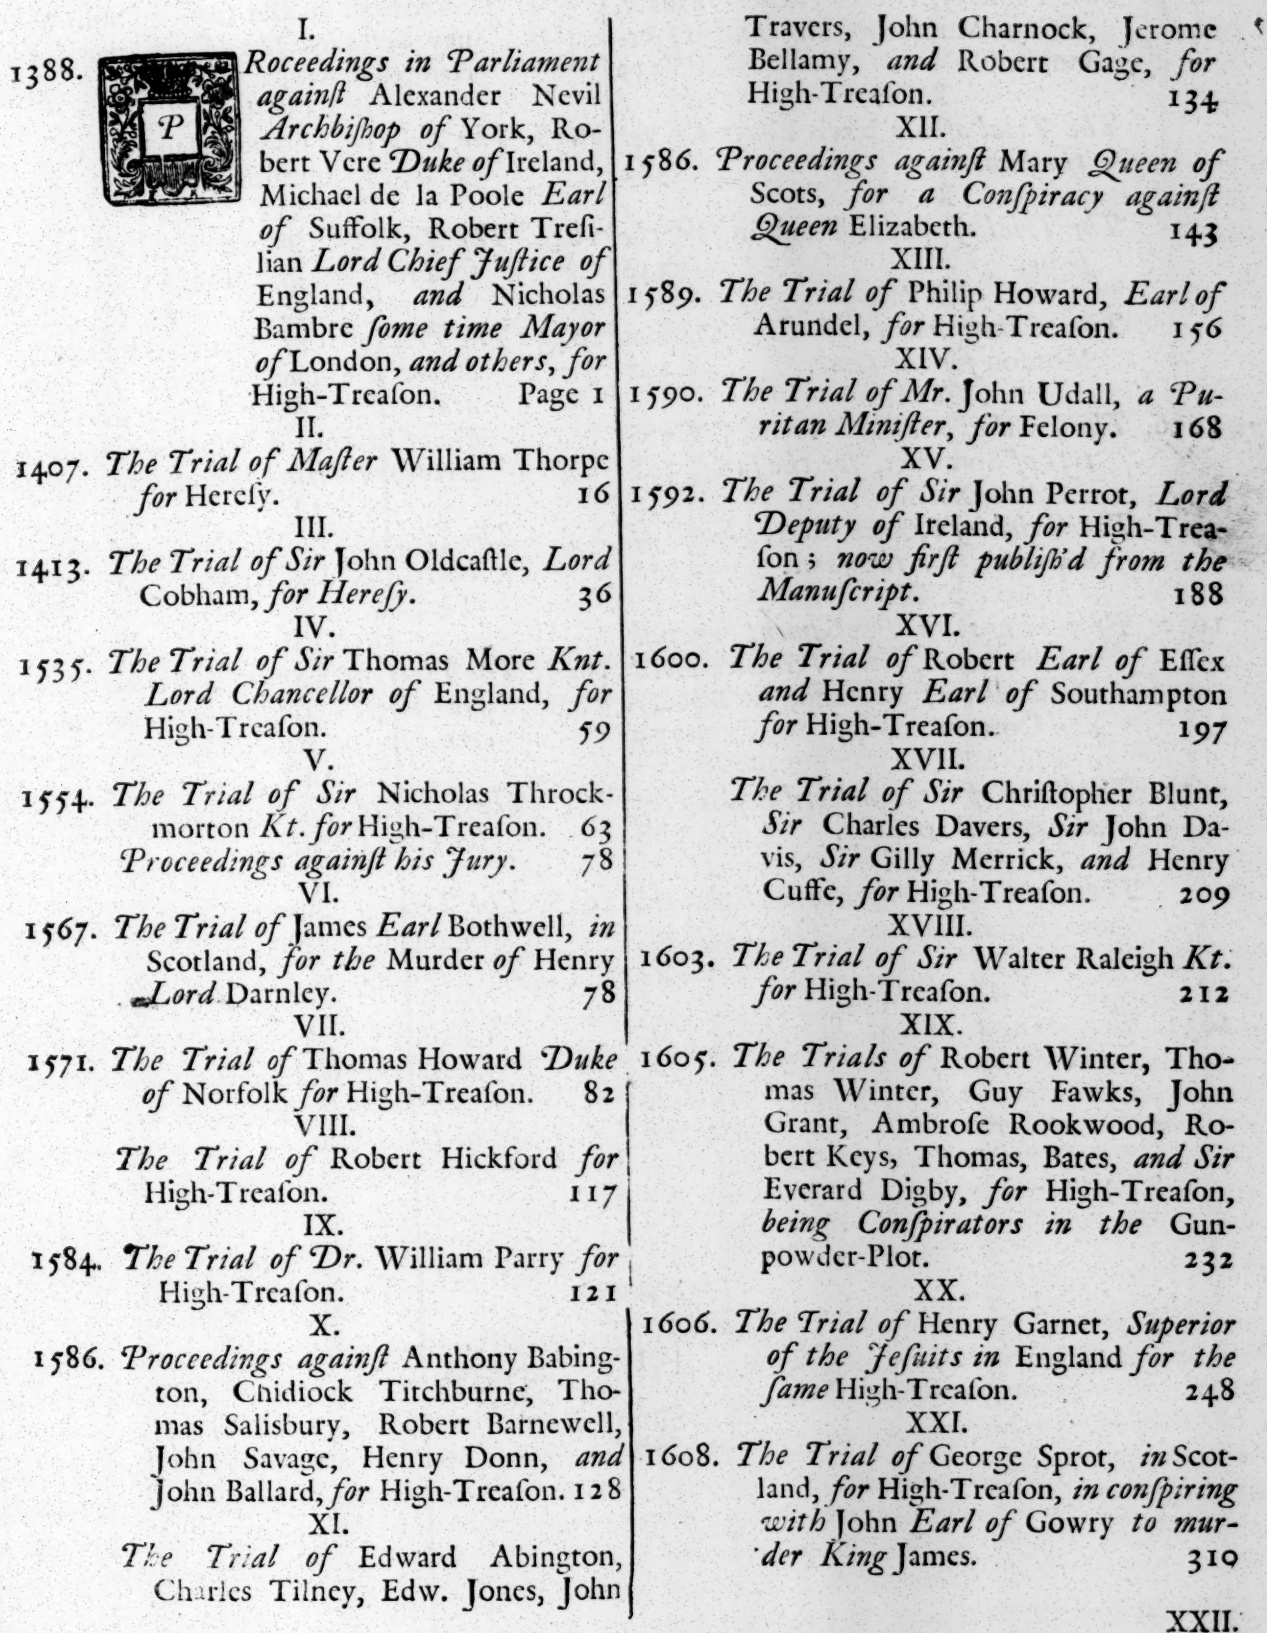 I.
1388. PRoceedings in Parliament
againſt Alexander Nevil
Archbiſhop of York, Ro-
bert Vere Duke of Ireland,
Michael de la Poole Earl
of Suffolk, Robert Treſi-
lian Lord Chief Juſtice of
England, and Nicholas
Bambre ſome time Mayor
of London, and others, for
High-Treaſon. Page 1
II.
1407. The Trial of Maſter William Thorpe
for Hereſy. 16
III.
1413. The Trial of Sir John Oldcaſtle, Lord
Cobham, for Hereſy. 36
IV.
1535. The Trial of Sir Thomas More Knt.
Lord Chancellor of England, for
High-Treaſon. 59
V.
1554. The Trial of Sir Nicholas Throck-
morton Kt. for High-Treaſon. 63
Proceedings againſt his Jury. 78
VI.
1567. The Trial of James Earl Bothwell, in
Scotland, for the Murder of Henry
Lord Darnley. 78
VII.
1571. The Trial of Thomas Howard Duke
of Norfolk for High-Treaſon. 82
VIII.
The Trial of Robert Hickford for
High-Treaſon. 117
IX.
1584. The Trial of Dr. William Parry for
High-Treaſon. 121
X.
1586. Proceedings againſt Anthony Babing-
ton, Chidiock Titchburne, Tho-
mas Salisbury, Robert Barnewell,
John Savage, Henry Donn, and
John Ballard, for High-Treaſon. 128
XI.
The Trial of Edward Abington,
Charles Tilney, Edw. Jones, John
Travers, John Charnock, Jerome
Bellamy, and Robert Gage, for
High-Treaſon. 134
XII.
1586. Proceedings againſt Mary Queen of
Scots, for a Conſpiracy againſt
Queen Elizabeth. 143
XIII.
1589. The Trial of Philip Howard, Earl of
Arundel, for High-Treaſon. 156
XIV.
1590. The Trial of Mr. John Udall, a Pu-
ritan Miniſter, for Felony. 168
XV.
1592. The Trial of Sir John Perrot, Lord
Deputy of Ireland, for High-Trea-
ſon; now firſt publiſh'd from the
Manuſcript. 188
XVI.
1600. The Trial of Robert Earl of Eſſex
and Henry Earl of Southampton
for High-Treaſon. 197
XVII.
The Trial of Sir Chriſtopher Blunt,
Sir Charles Davers, Sir John Da-
vis, Sir Gilly Merrick, and Henry
Cuffe, for High-Treaſon. 209
XVIII.
1603. The Trial of Sir Walter Raleigh Kt.
for High-Treaſon. 212
XIX.
1605. The Trials of Robert Winter, Tho-
mas Winter, Guy Fawks, John
Grant, Ambroſe Rookwood, Ro-
bert Keys, Thomas, Bates, and Sir
Everard Digby, for High-Treaſon,
being Conſpirators in the Gun-
powder-Plot. 232
XX.
1606. The Trial of Henry Garnet, Superior
of the Jeſuits in England for the
ſame High-Treaſon. 248
XXI.
1608. The Trial of George Sprot, in Scot-
land, for High-Treaſon, in conſpiring
with John Earl of Gowry to mur-
der King James. 310
XXII.